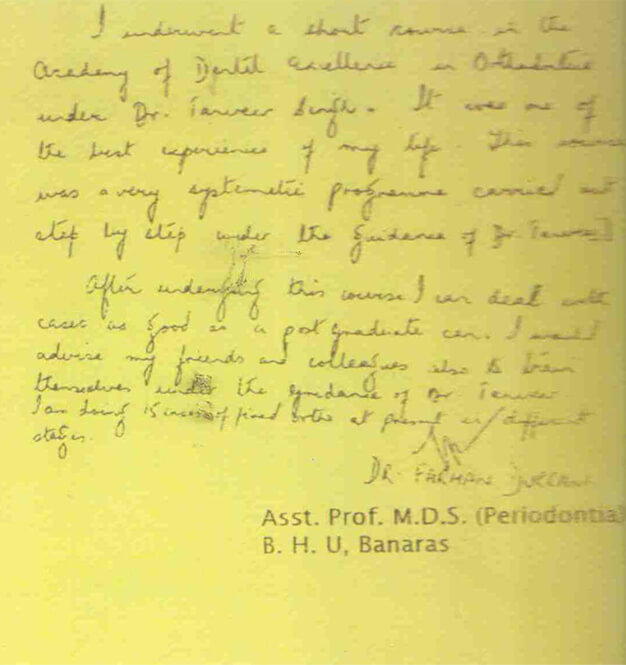 I underwent a short course in the
Academy of Dental Excellence in Orthodontics
under Dr. Tanveer Singh. It was one of
the best experience of my life. This course
was a very systemetic programme carried out
step by step under the guidance of Dr. Tanveer
After undergoing this course I can deal with
cases as good as a post graduate can. I would
advise my friends and colleagues also to train
themselves under the guidance of Dr Tanveer.
I am doing 15 cases of fixed ortho at present in different
stages.
DR. FARHAN DURRANI
Asst. Prof. M.D.S. (Periodontia)
B. H. U, Banaras